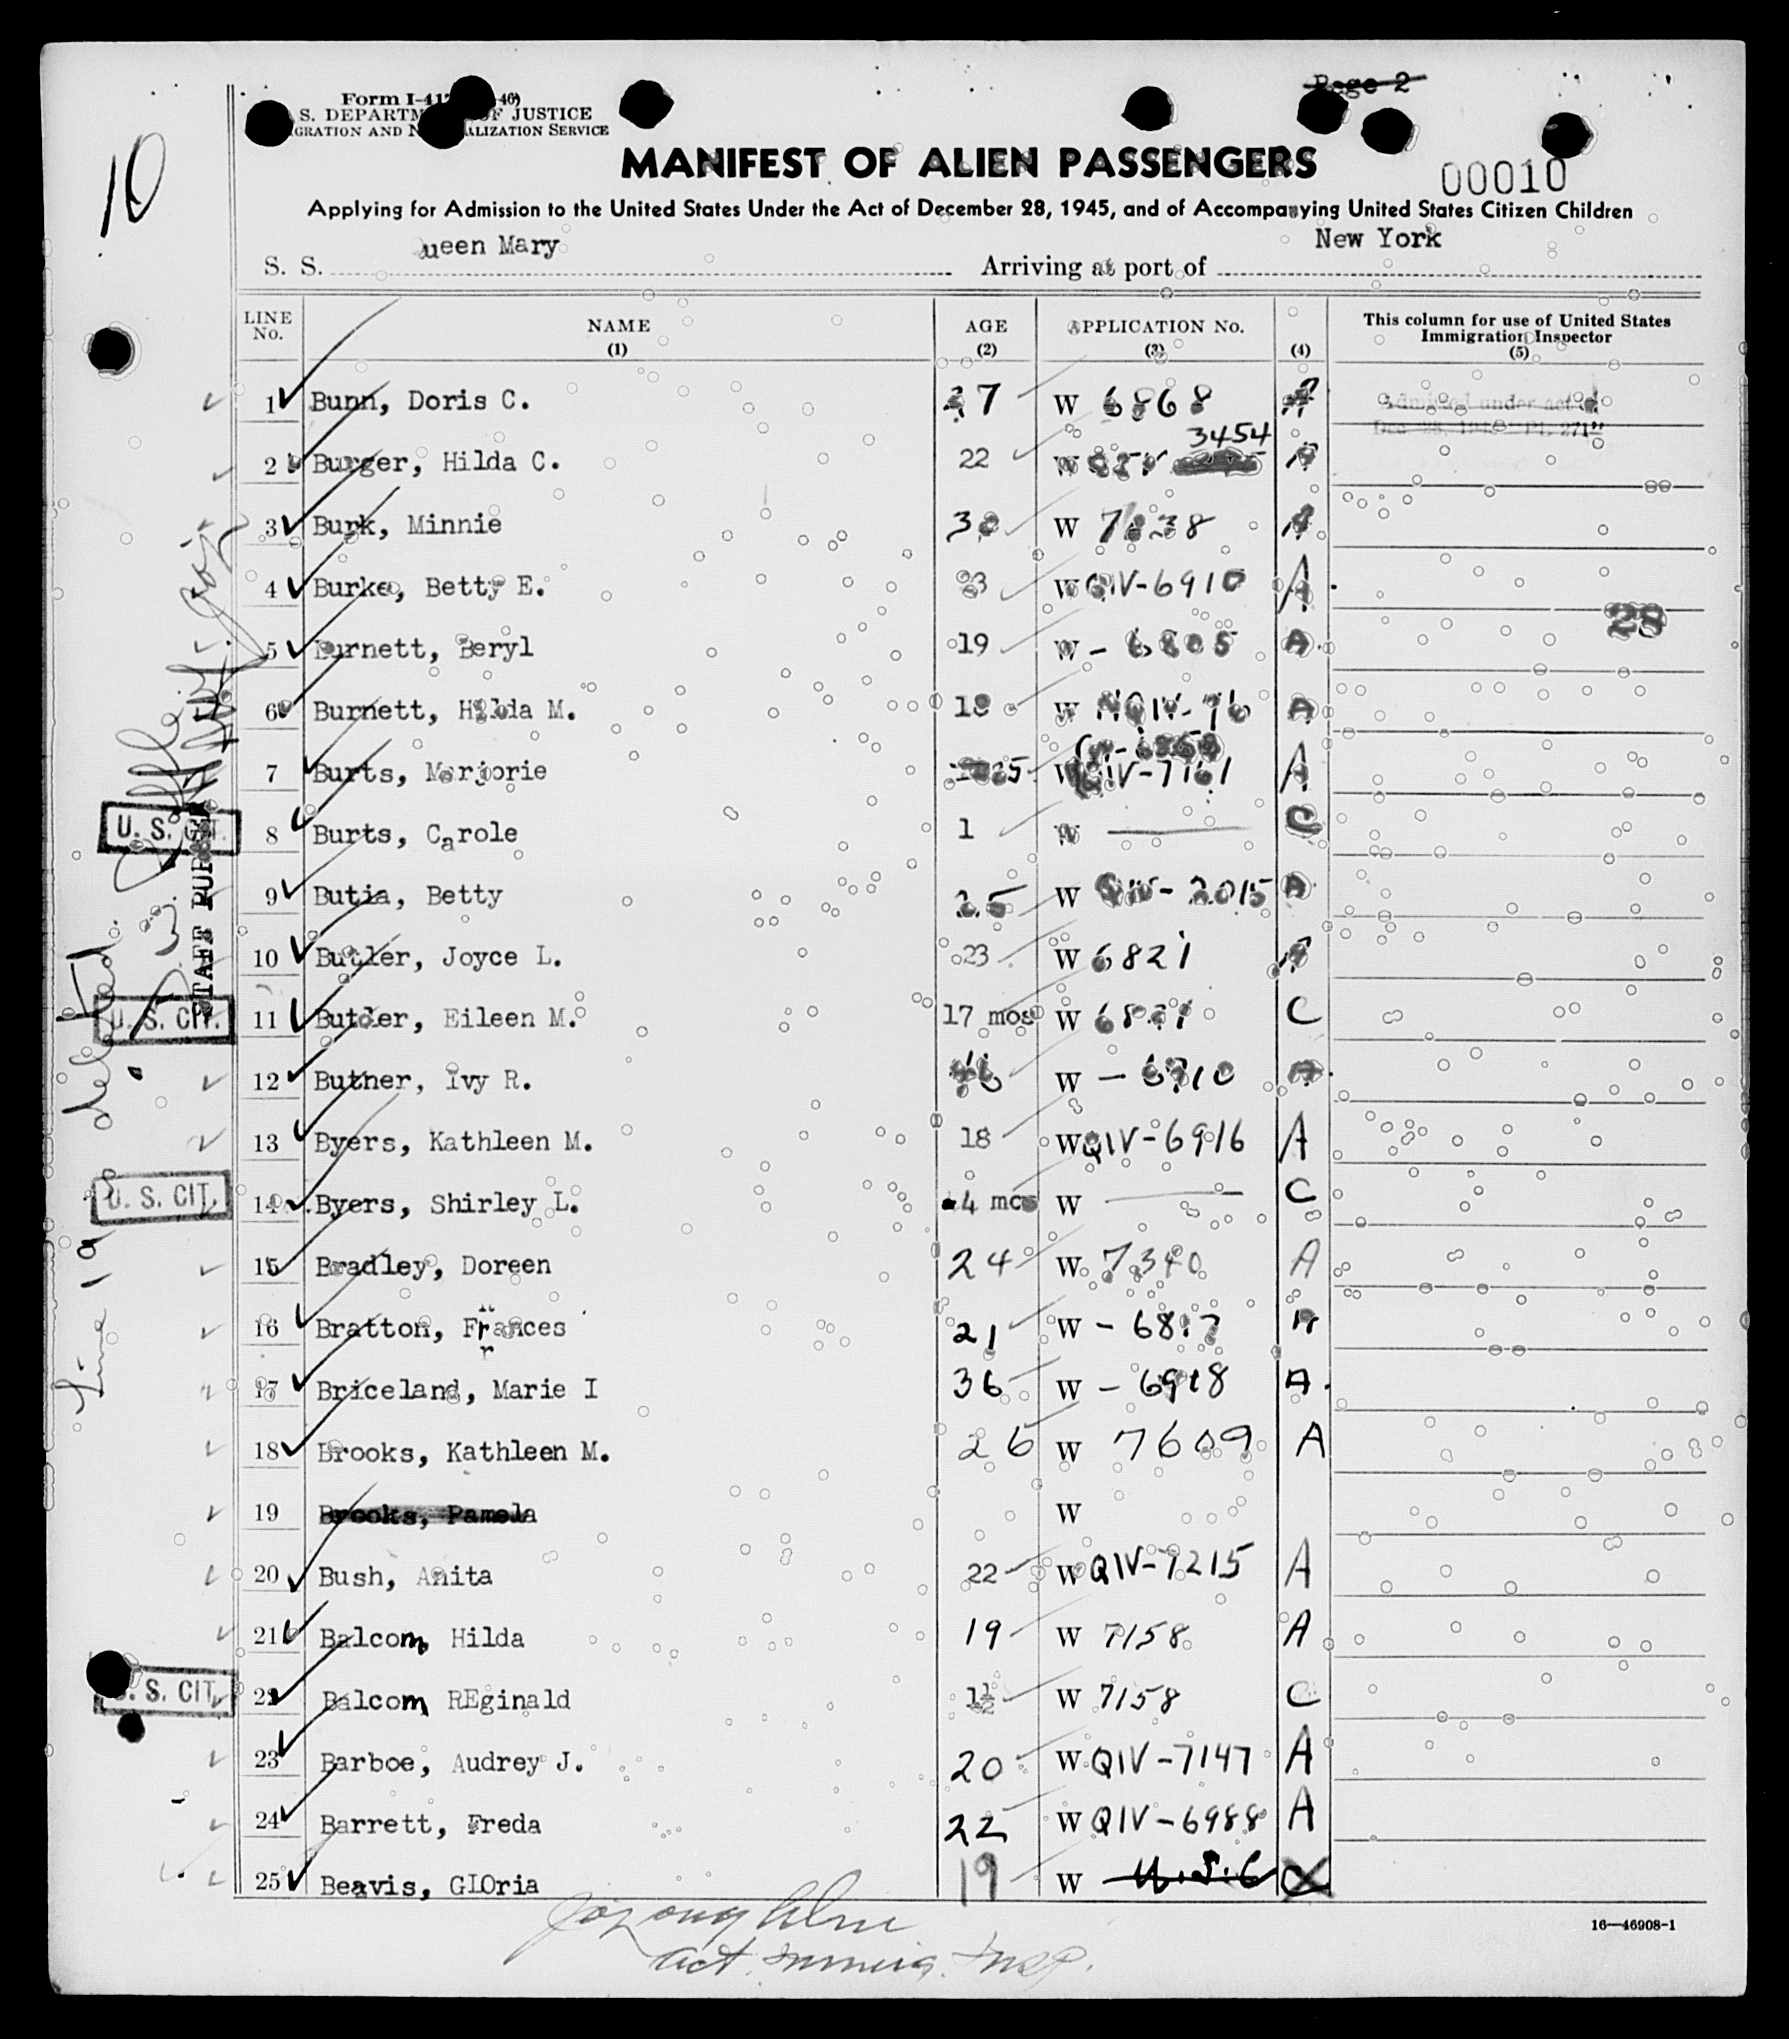 Page 2
Form I-41 46)
S. DEPARTM OF JUSTICE
GRATION AND N ALIZATION SERVICE
10
MANIFEST OF ALIEN PASSENGERS
00010
Applying for Admission to the United States Under the Act of December 28, 1945, and of Accompanying United States Citizen Children
S. S. ueen Mary Arriving at port of New York
LINE No. NAME (1) AGE (2) APPLICATION No. (3) (4) This column for use of United States Immigration Inspector (5)
1 Bunn, Doris C. 27 W 6868 A Admitted under act of
Dec 28, 194 Pl. 271"
3454
2 Burger, Hilda C. 22 W A
3 Burk, Minnie 30 W 7838 A
4 Burke, Betty E. 23 W QIV-6910 A
28
5 Burnett, Beryl 19 W - 6805 A
6 Burnett, Hilda M. 18 W A
7 Burts, Marjorie 25 W QIV-7161 A
U. S. CIT. 8 Burts, Carole 1 W — C
9 Butia, Betty 25 W QIV- 2015 A
10 Butler, Joyce L. 23 W 6821 A
U. S. CIT. 11 Butler, Eileen M. 17 mos W 6821 C
12 Butner, Ivy R. W - 6710 A
13 Byers, Kathleen M. 18 W QIV-6916 A
U. S. CIT. 14 Byers, Shirley L. 4 mos W — C
15 Bradley, Doreen 24 W 7340 A
16 Bratton, Frances 21 W - 6817 A
r
17 Briceland, Marie I 36 W - 6918 A
18 Brooks, Kathleen M. 26 W 7609 A
19 Brooks, Pamela W
20 Bush, Anita 22 W QIV-7215 A
21 Balcom, Hilda 19 W 7158 A
U. S. CIT. 22 Balcom, REginald 1½ W 7158 C
23 Barboe, Audrey J. 20 W QIV-7147 A
24 Barrett, Freda 22 W QIV-6988 A
25 Beavis, GLOria 19 W U.S.C
16—46908-1
act. Immig. Insp.
Line 19 deleted.
STAFF PURSER